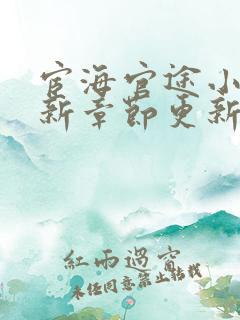 宦海官途小
新章節更新
紅雨過窗
未任同意禁止轉載